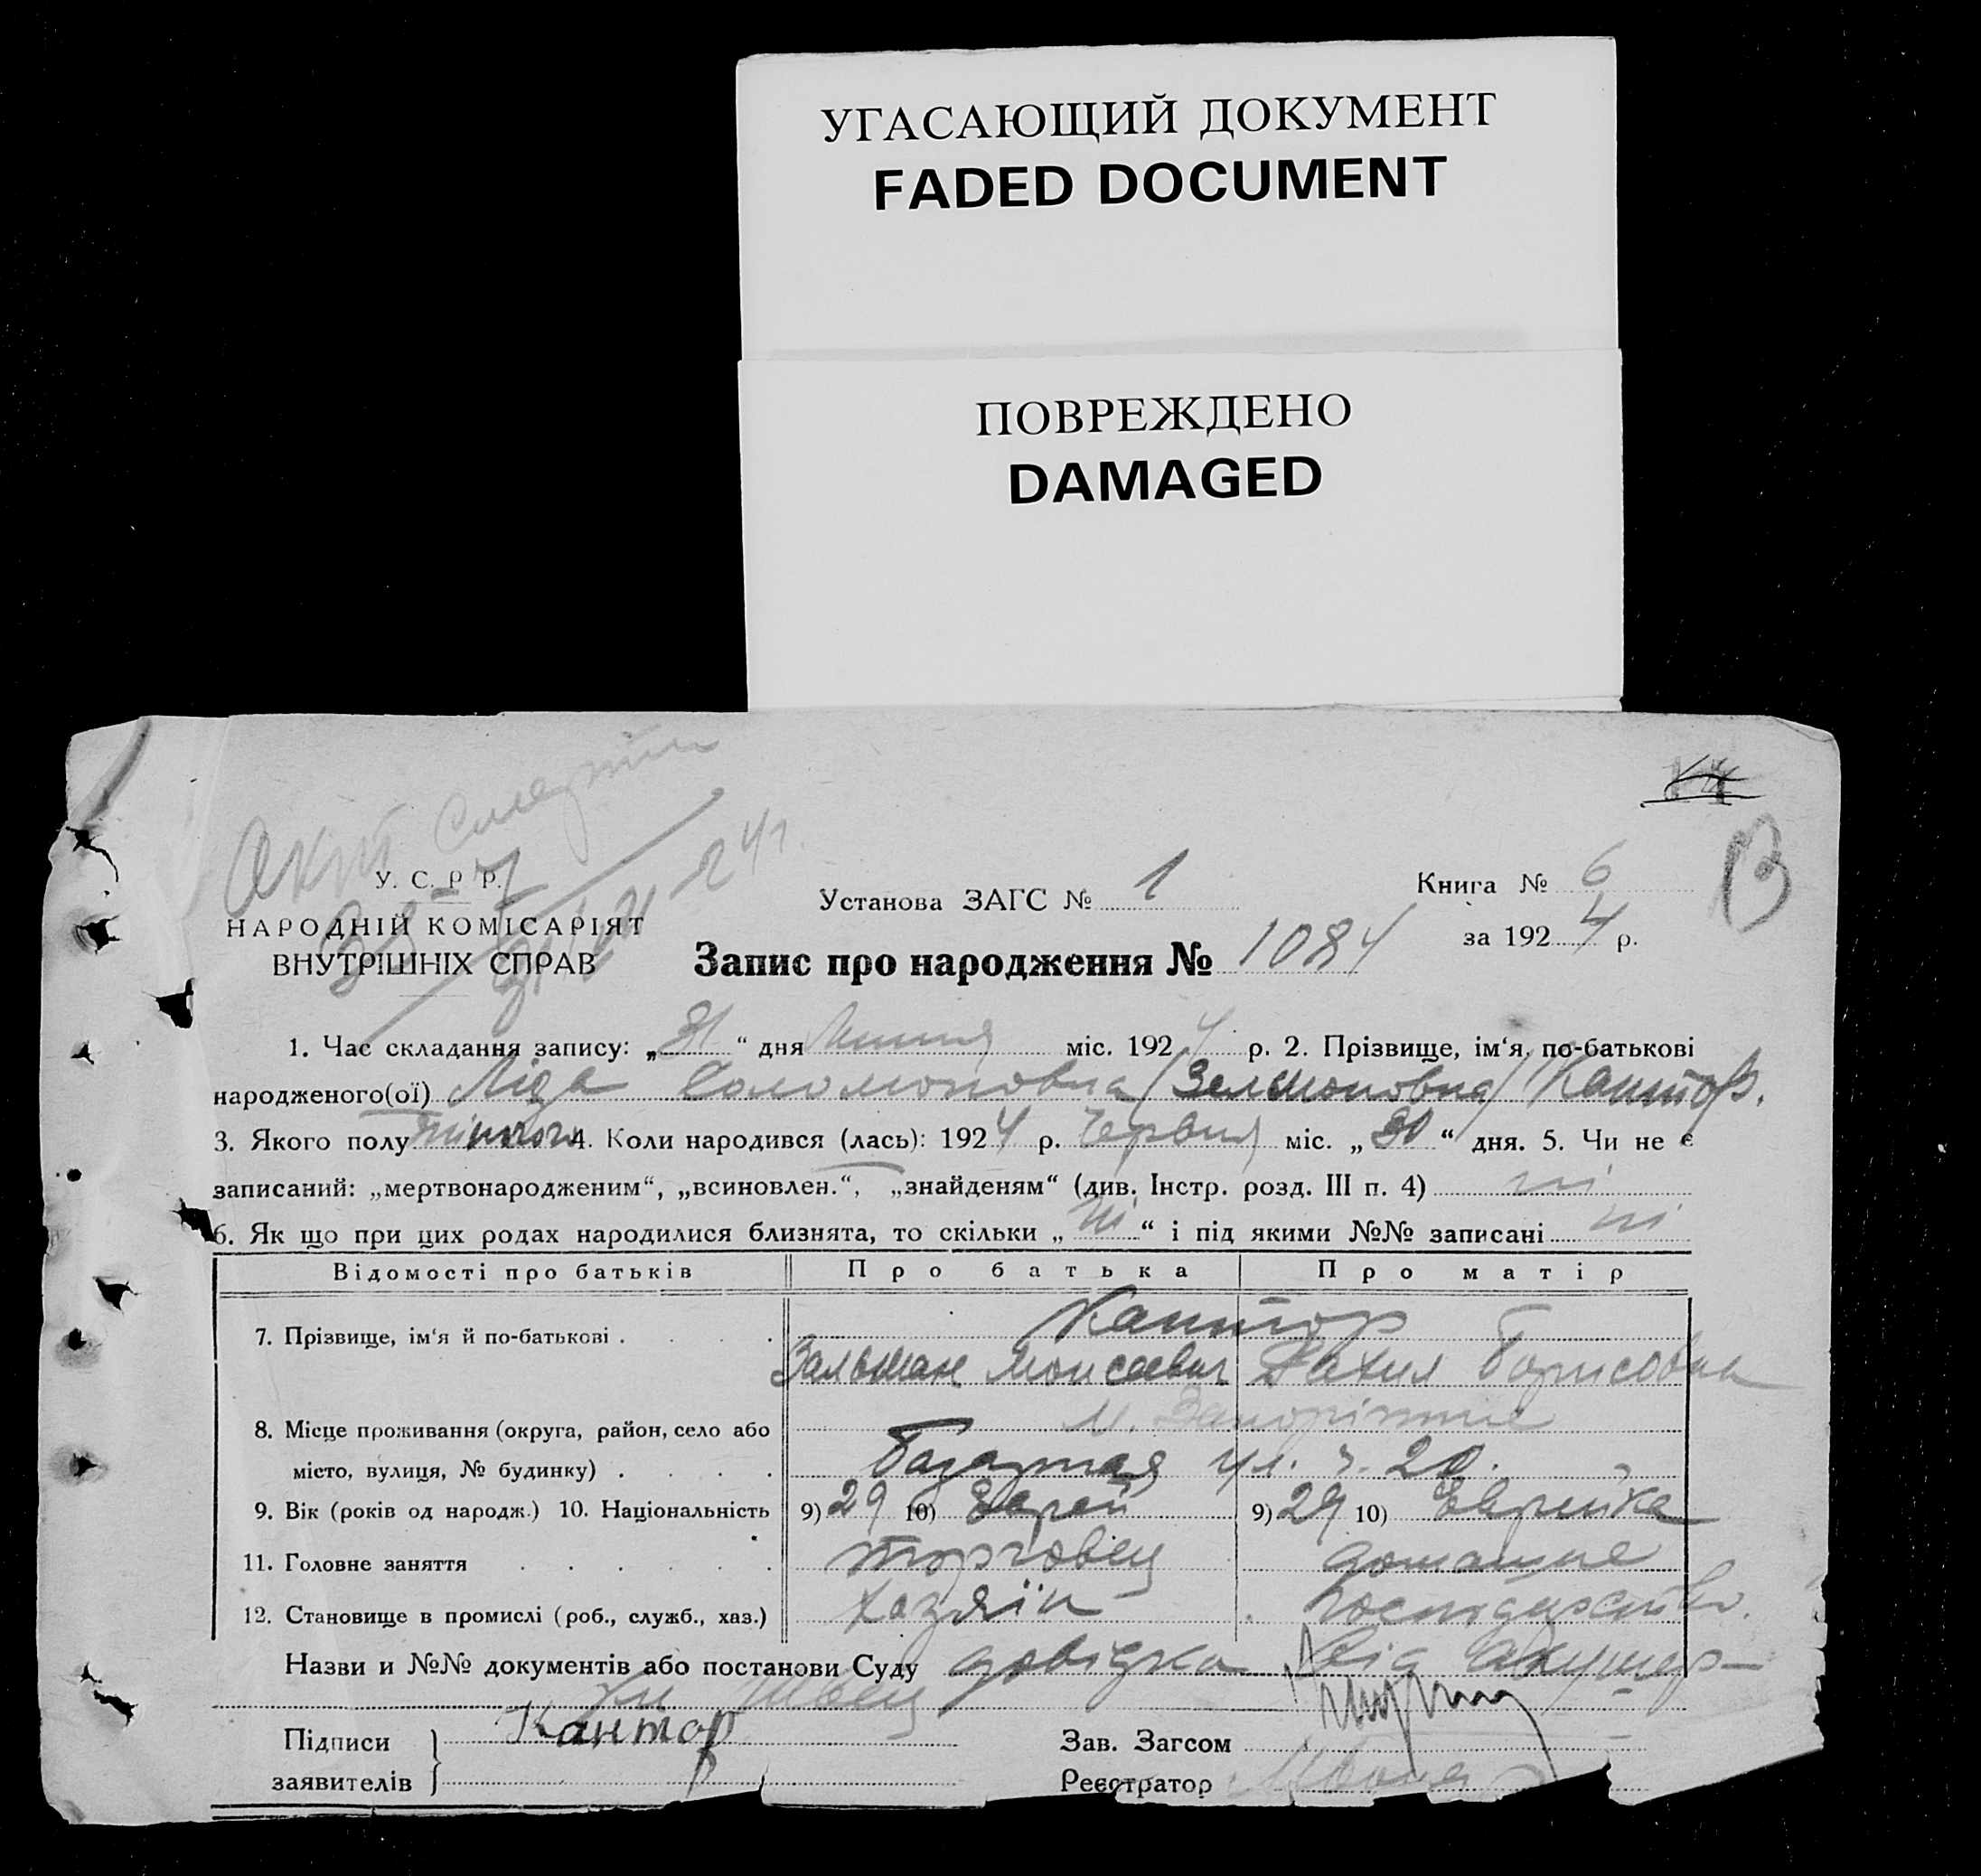 УГАСАЮЩИЙ ДОКУМЕНТ
FADED DOCUMENT
ПОВРЕЖДЕНО
DAMAGED
Акт смерти
У. С. Р Р.
НАРОДНІЙ КОМІСАРІЯТ
ВНУТРІШНІХ СПРАВ
Установа ЗАГС № 1
Книга № 6
за 1924 р.
Запис про народження № 1084
1. Час складання запису: „31“ дня Липня міс. 1924 р. 2. Прізвище, ім‘я, по-батькові
народженого(ої) Ліда Соломоновна (Зельмоновна) Кантор.
3. Якого полу жіночого 4. Коли народився (лась): 1924 р. Червня міс. „30“ дня. 5. Чи не є
записаний: „мертвонародженим“, „всиновлен.“, „знайденям“ (див. Інстр. розд. III п. 4) ні
6. Як що при цих родах народилися близнята, то скільки „ні“ і під якими №№ записані ні
Відомості про батьків Про батька Про матір
7. Прізвище, ім‘я й по-батькові . . . . Кантор
Зальман Моисеевич Рахиля Борисовна
8. Місце проживання (округа, район, село або м. Запоріжжє
місто, вулиця, № будинку) . . . . Базарная ул. ч. 20.
9. Вік (років од народж.) 10. Національність 9) 29 10) Еврей 9) 29 10) Еврейка
11. Головне заняття . . . . . . торговец домашнє
12. Становище в промислі (роб., служб., хаз.) хазяїн господарство.
Назви и №№ документів або постанови Суду довідка від Акушер-
ки Швец
Підписи Кантор
заявителів
Зав. Загсом
Реєстратор